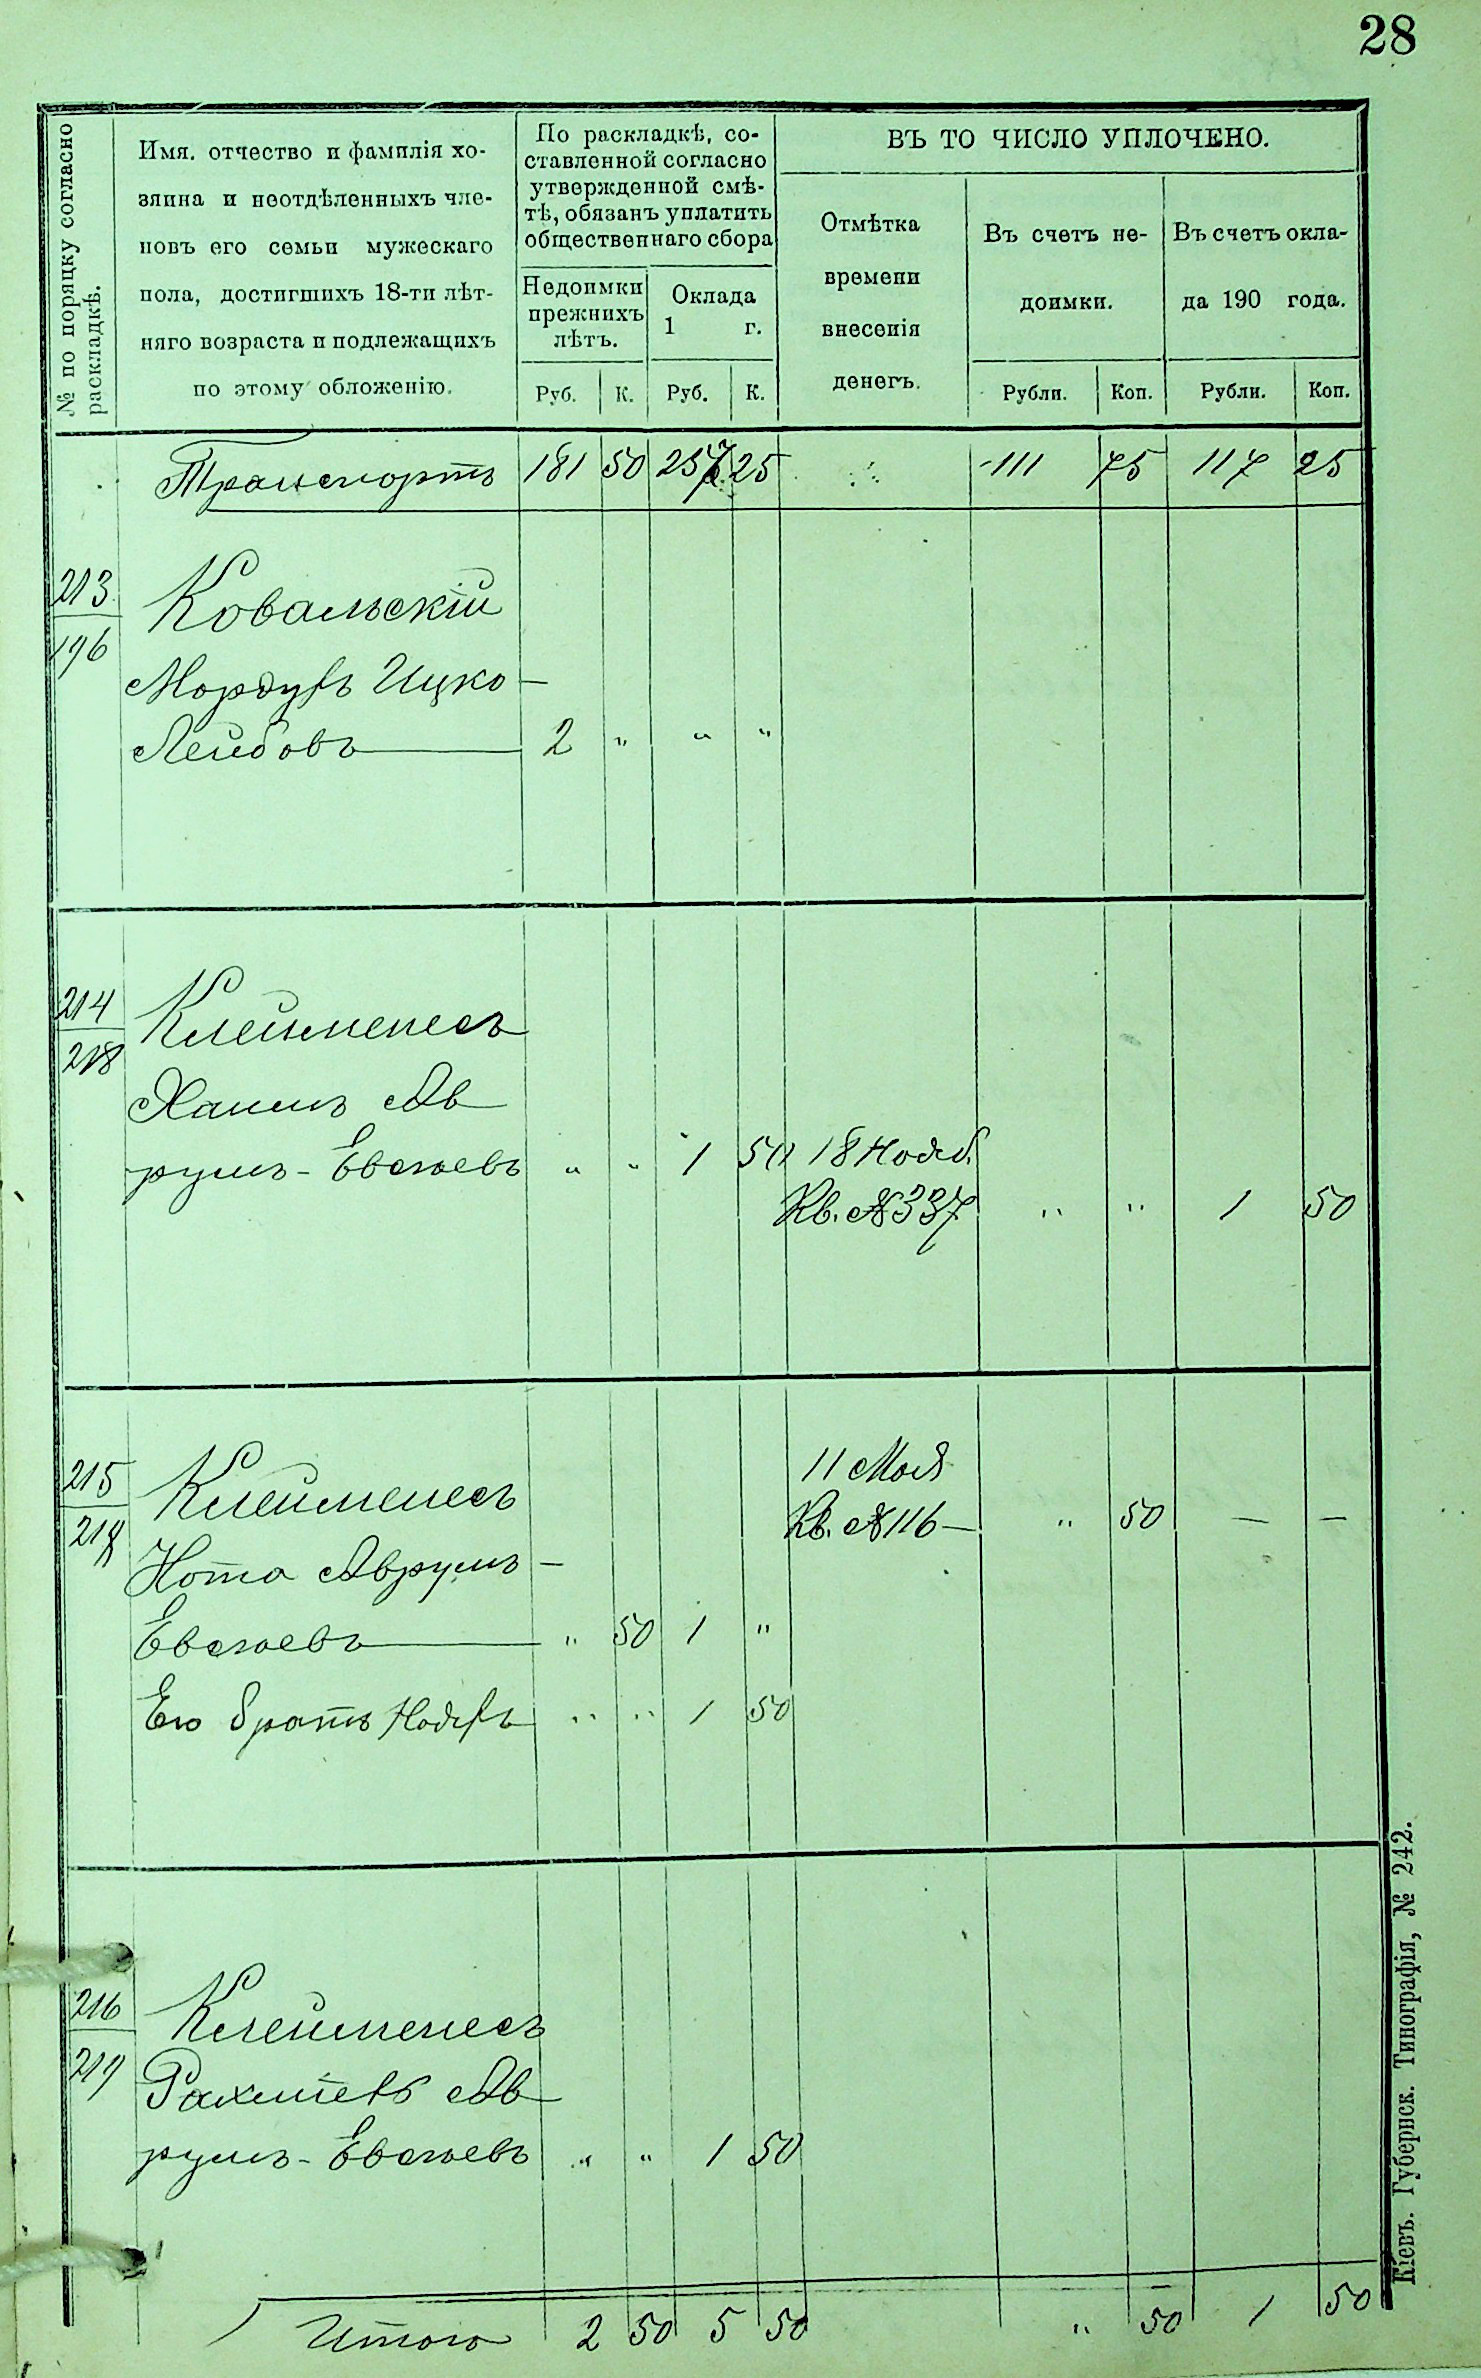 28
№ по порядку согласно
раскладкѣ.
Имя. отчество и фамилія хо-
зяина и неотдѣленныхъ чле-
новъ его семьи мужескаго
пола, достигшихъ 18-ти лѣт-
няго возраста и подлежащихъ
по этому обложенію.
По раскладкѣ, со-
ставленной согласно
утвержденной смѣ-
тѣ, обязанъ уплатить
общественнаго сбора
Недоимки
прежнихъ
лѣтъ.
Оклада
1 г.
Руб. К. Руб. К.
ВЪ ТО ЧИСЛО УПЛОЧЕНО.
Отмѣтка
времени
внесенія
денегъ.
Въ счетъ не-
доимки.
Въ счетъ окла-
да 190 года.
Рубли. Коп. Рубли. Коп.
Транспортъ 181 50 257 25 111 75 117 25
213
196
Ковальскій
Мордухъ Ицко-
Лейбовъ 2 " " "
214
218
Клейменесъ
Хаимъ Ав
румъ-Евсеевъ " " 1 50 18 Нояб.
Кв. № 337 " " 1 50
215
218
Клейменесъ
11 Мая
Кв. № 116 — " 50 — —
Нота Аврумъ-
Евсеевъ " 50 1 "
Его братъ Нояхъ " " 1 50
216
219
Клейменесъ
Рахміевъ Ав
румъ-Евсеевъ " " 1 50
Итого 2 50 5 50 " 50 1 50
Кіевъ. Губернск. Типографія, № 242.